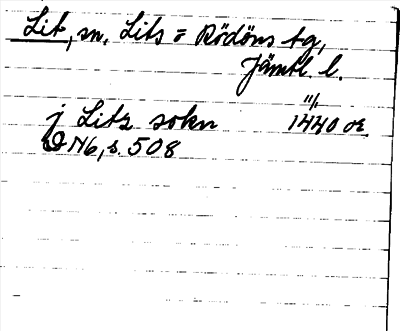 Lit, sn. Lits = Rödöns tg,
Jämtl. l.
j Litz sokn 11/1 1440 or.
N6, s. 508